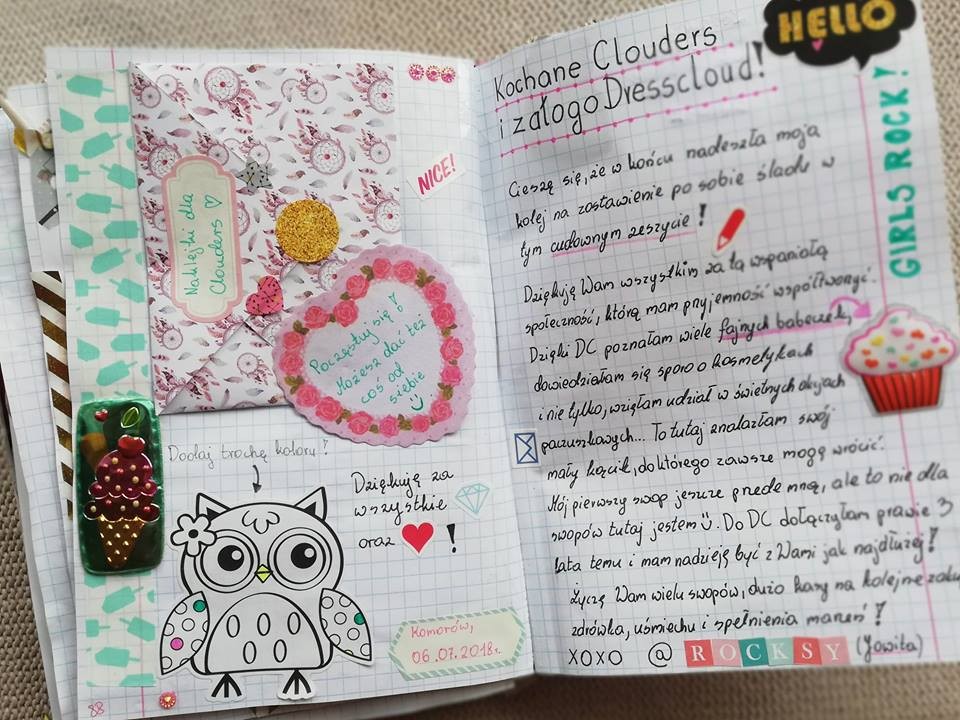 NICE!
Naklejki dla
Clouders ♡
Poczęstuj się!
Możesz dać też
coś od
siebie
Dodaj trochę koloru!
Dziękuję za
wszystkie
oraz ❤ !
Komorów,
06.07.2018r.
88
HELLO
GIRLS ROCK!
Kochane Clouders
i załogo Dresscloud!
Cieszę się, że w końcu nadeszła moja
kolej na zostawienie po sobie śladu w
tym cudownym zeszycie!
Dziękuję Wam wszystkim za tą wspaniałą
społeczność, którą mam przyjemność współtworzyć.
Dzięki DC poznałam wiele fajnych babeczek,
dowiedziałam się sporo o kosmetykach
i nie tylko, wzięłam udział w świetnych akcjach
paczuszkowych... To tutaj znalazłam swój
mały kącik, do którego zawsze mogę wrócić.
Mój pierwszy swop jeszcze przede mną, ale to nie dla
swopów tutaj jestem Ü. Do DC dołączyłam prawie 3
lata temu i mam nadzieję być z Wami jak najdłużej!
Życzę Wam wielu swopów, dużo kasy na kolejne zaku
zdrówka, uśmiechu i spełnienia marzeń!
XOXO @ ROCKSY (Jowita)